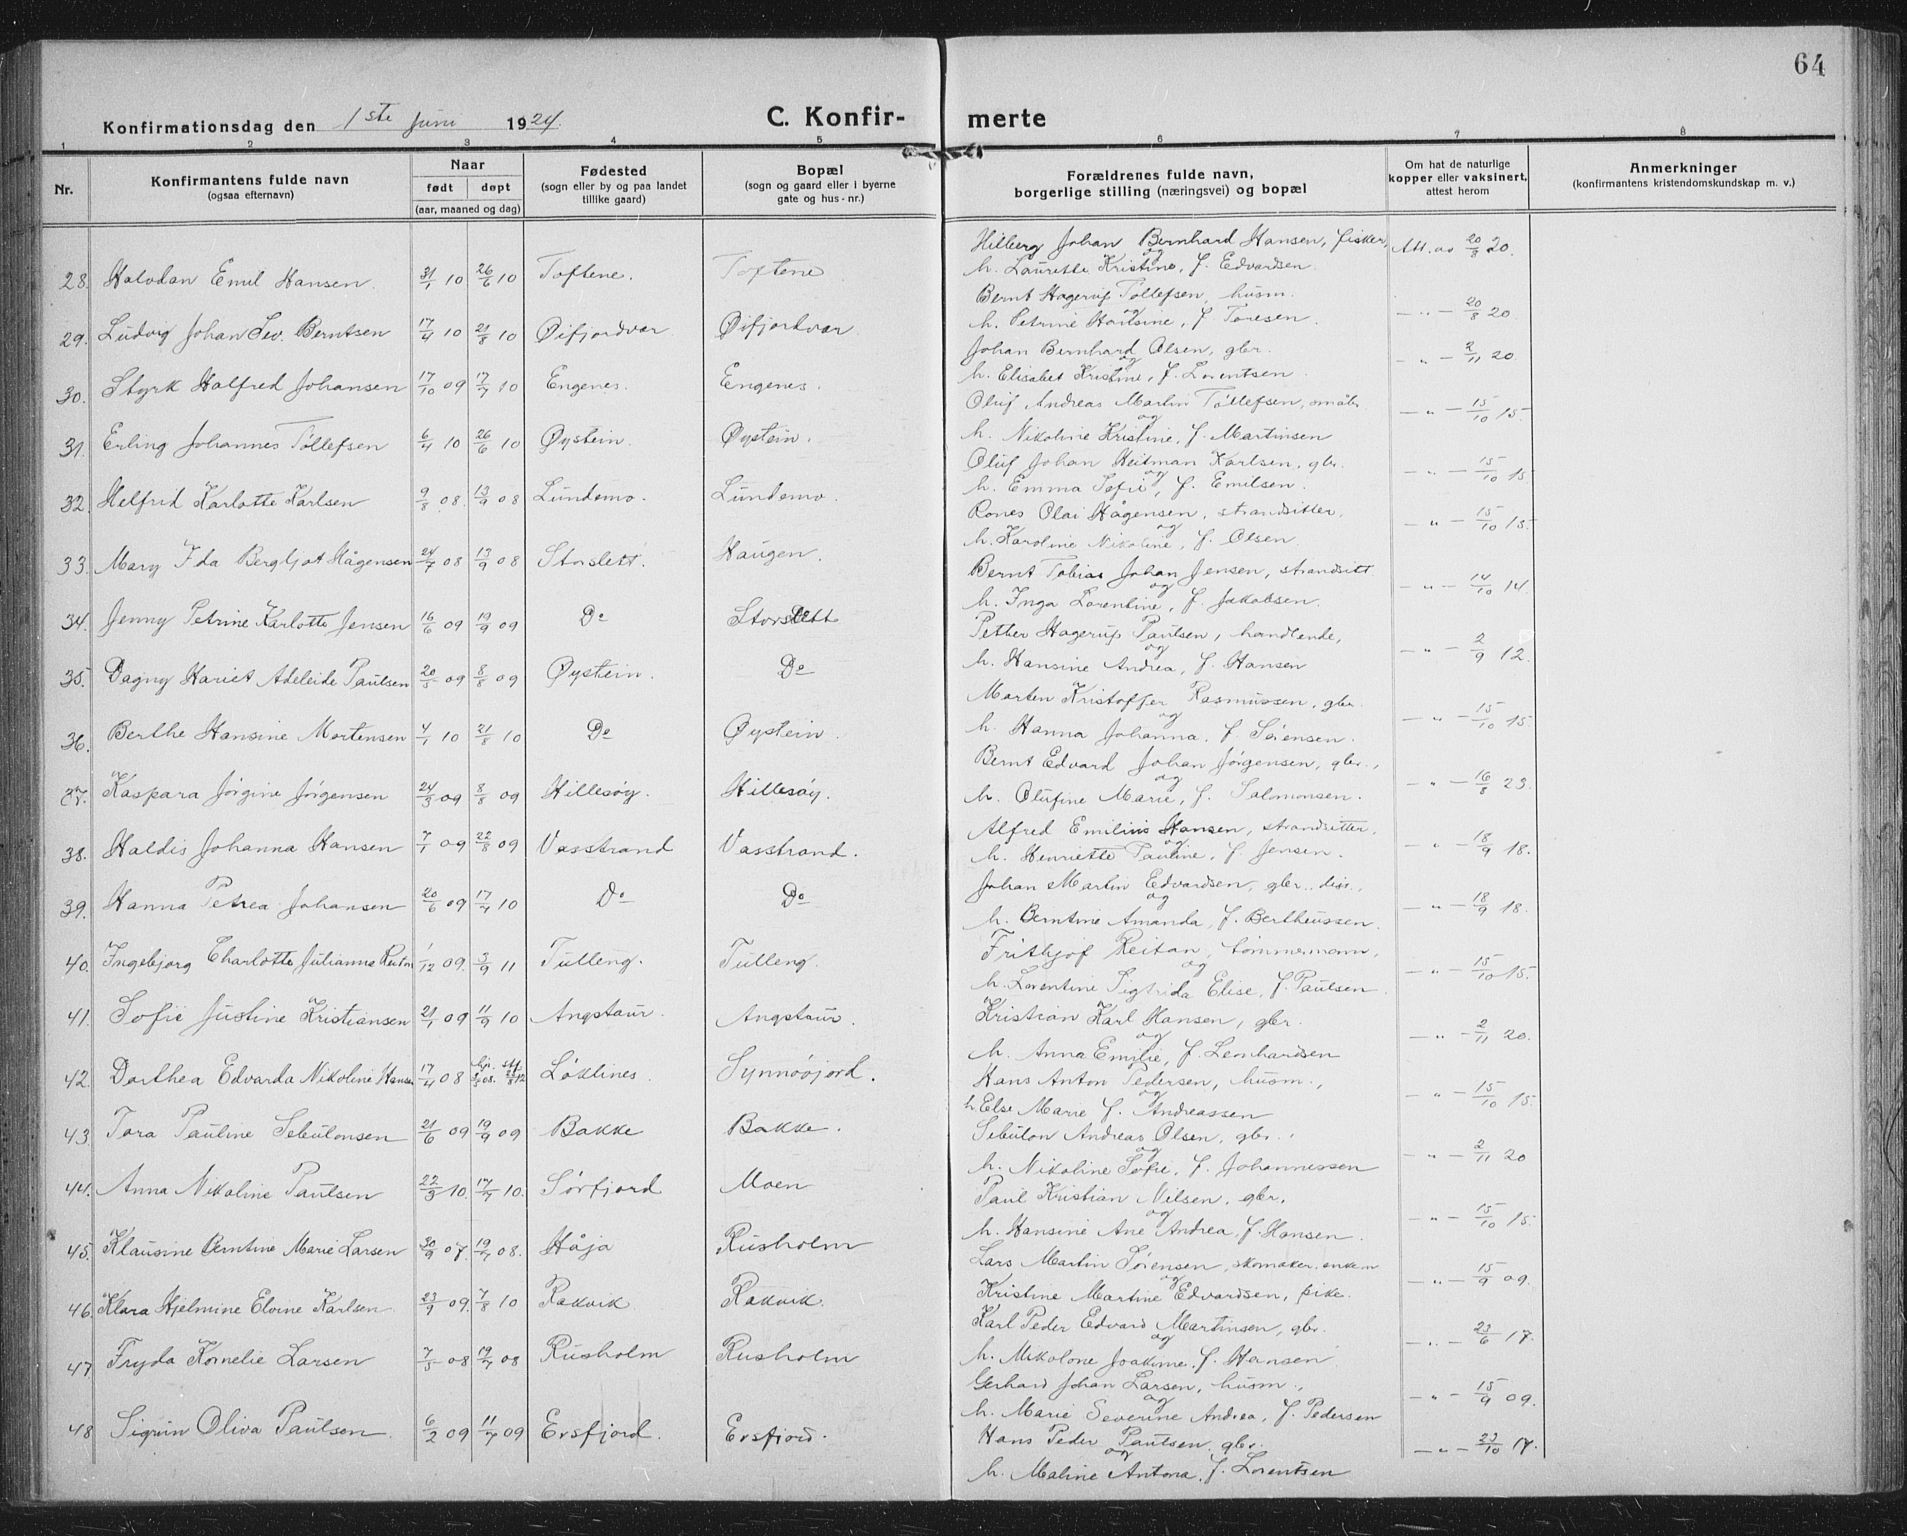 64
Konfirmationsdag den 1ste Juni 1924. C. Konfir- merte
1 2 3 4 5 6 7 8
Nr.
Konfirmantens fulde navn
(ogsaa efternavn)
Naar
født døpt
(aar, maaned og dag)
Fødested
(sogn eller by og paa landet
tillike gaard)
Bopæl
(sogn og gaard eller i byerne
gate og hus-nr.)
Forældrenes fulde navn,
borgerlige stilling (næringsvei) og bopæl
Om hat de naturlige
kopper eller vaksinert,
attest herom
Anmerkninger
(konfirmantens kristendomskundskap m. v.)
28. Halvdan Emil Hansen. 31/1 10 26/6 10 Toftene. Toftene
Hilberg Johan Bernhard Hansen, fisker, Att. av 20/8 20.
og
h. Laurette Kristine, f. Edvardsen.
29. Ludvig Johan Sev. Berntsen 17/4 10 21/8 10 Øifjordvær Øifjordvær
Bernt Hagerup Tollefsen, husm. — " — 20/8 20
og
h. Petrine Hansine, f. Toresen.
30. Styrk Halfred Johansen 17/10 09 17/7 10 Engenes. Engenes.
Johan Bernhard Olsen, gbr. — " — 2/11 20
og
h. Elisabet Kristine, f. Lorentsen.
31. Erling Johannes Tollefsen 6/4 10 26/6 10 Øystein. Øystein.
Oluf Andreas Martin Tollefsen, småbr. — " — 15/10 15.
og
h. Nikoline Kristine, f. Martinsen
32. Helfrid Karlotte Karlsen 9/8 08. 13/9 08 Lundemo. Lundemo.
Oluf Johan Heitman Karlsen, gbr. — " — 15/10 15
og
h. Emma Sofie, f. Emilsen.
33. Mary Ida Bergljot Hågensen 24/7 08 13/9 08 Storslett. Haugen.
Rones Olai Hågensen, strandsitter, — " — 15/10 15.
og
h. Karoline Nikoline, f. Olsen.
34. Jenny Petrine Karlotte Jensen 16/6 09 19/9 09 Do Storslett
Bernt Tobias Johan Jensen, strandsitt. — " — 14/10 14.
og
h. Inga Lorentine, f. Jakobsen.
35. Dagny Hariet Adeleide Paulsen 20/5 09 8/8 09 Øystein. Do
Petter Hagerup Paulsen, handlende, — " — 2/9 12.
og
h. Hansine Andrea, f. Hansen
36. Berthe Hansine Mortensen 4/1 10 21/8 10 Do Øystein.
Morten Kristoffer Rasmussen, gbr. — " — 15/10 15
og
h. Hanna Johanna, f. Sørensen.
37. Kaspara Jørgine Jørgensen 24/3 09 8/8 09 Hillesøy. Hillesøy.
Bernt Edvard Johan Jørgensen, gbr., — " — 16/8 23.
og
h. Olufine Marie, f. Salomonsen.
38. Haldis Johanna Hansen 7/1 09 22/8 09 Vasstrand Vasstrand.
Alfred Emilius Hansen, strandsitter. — " — 18/9 18.
og
h. Henriette Pauline, f. Jensen.
39. Hanna Petrea Johansen 20/6 09 17/7 10 Do Do
Johan Martin Edvardsen, gbr. — " — 18/9 18.
og
h. Berntine Amanda, f. Bertheussen.
40. Ingebjørg Charlotte Julianna Reitan 1/12 09. 3/9 11 Tulleng. Tulleng.
Frithjof Reitan, tømmermann, — " — 15/10 15.
og
h. Lorentine Sigfrida Elise, f. Paulsen.
41. Sofie Justine Kristiansen 21/1 09 11/9 10 Angstaur. Angstaur.
Kristian Karl Hansen, gbr. — " — 2/11 20.
og
h. Anna Emilie, f. Lenhardsen
42. Dorthea Edvarda Nikoline Hansen 17/4 08 Løklines. Synnøjord.
Hans Anton Pedersen, husm., — " — 15/10 15.
og
h. Else Marie f. Andreassen
43. Tora Pauline Sebulonsen 21/6 09 19/9 09 Bakke Bakke.
Sebulon Andreas Olsen, gbr., — " — 2/11 20
og
h. Nikoline Sofie, f. Johannessen
44. Anna Nikoline Paulsen 22/3 10. 17/7 10. Sørfjord Moen
Paul Kristian Nilsen, gbr. — " — 15/10 15.
og
h. Hansine Ane Andrea, f. Hansen.
45. Klausine Berntine Marie Larsen 30/9 07. 19/7 08. Håja Rusholm
Lars Martin Sørensen, skomaker, enkem — " — 15/9 09.
og
Kristine Martine Edvardsen, pike.
46. Klara Hjelmine Elvine Karlsen 23/9 09. 7/8 10 Rakvik Rakvik.
Karl Peder Edvard Martinsen, gbr. — " — 23/6 17.
og
h. Nikolone Joakime, f. Hansen
47 Fryda Kornelie Larsen 7/5 08 19/7 08 Rusholm Rusholm
Gerhard Johan Larsen, husm., — " — 15/9 09.
og
h. Marie Severine Andrea, f. Pedersen
48 Sigrun Oliva Paulsen. 6/2 09 11/7 09 Ersfjord. Ersfjord.
Hans Peder Paulsen, gbr. — " — 23/10 17.
og
h. Maline Antona, f. Lorentsen